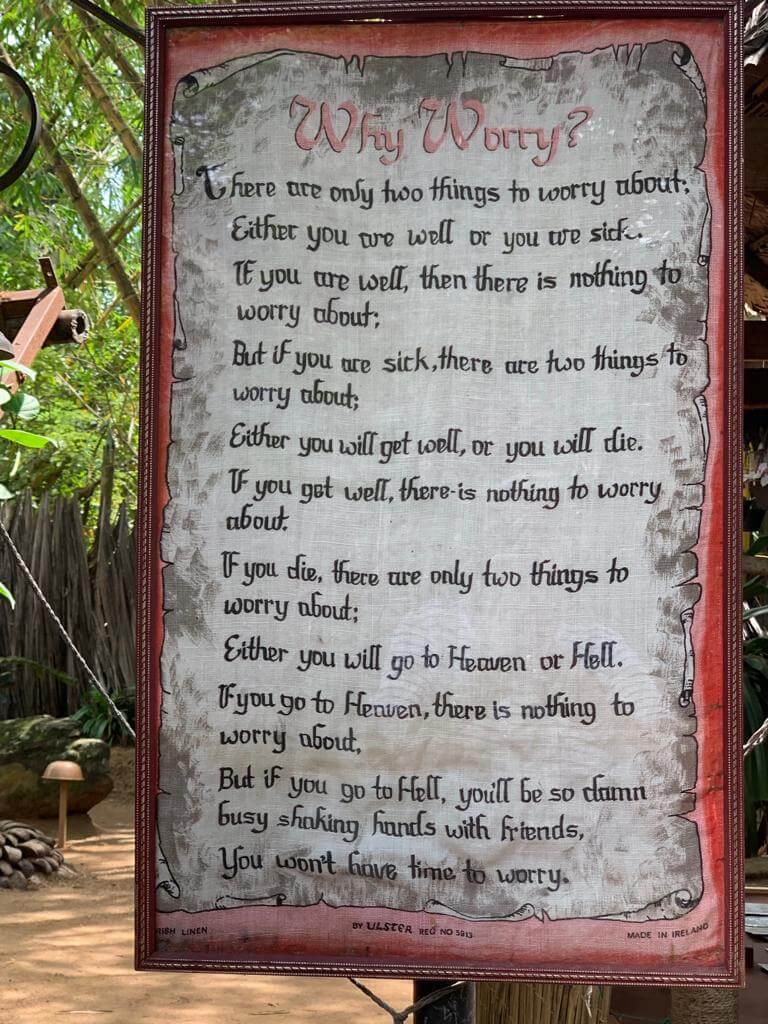 Why Worry?
There are only two things to worry about;
Either you are well or you are sick.
If you are well, then there is nothing to
worry about;
But if you are sick, there are two things to
worry about;
Either you will get well, or you will die.
If you get well, there is nothing to worry
about.
If you die, there are only two things to
worry about;
Either you will go to Heaven or Hell.
If you go to Heaven, there is nothing to
worry about,
But if you go to Hell, you'll be so damn
busy shaking hands with friends,
You won't have time to worry.
IRISH LINEN BY ULSTER REG NO 3813 MADE IN IRELAND